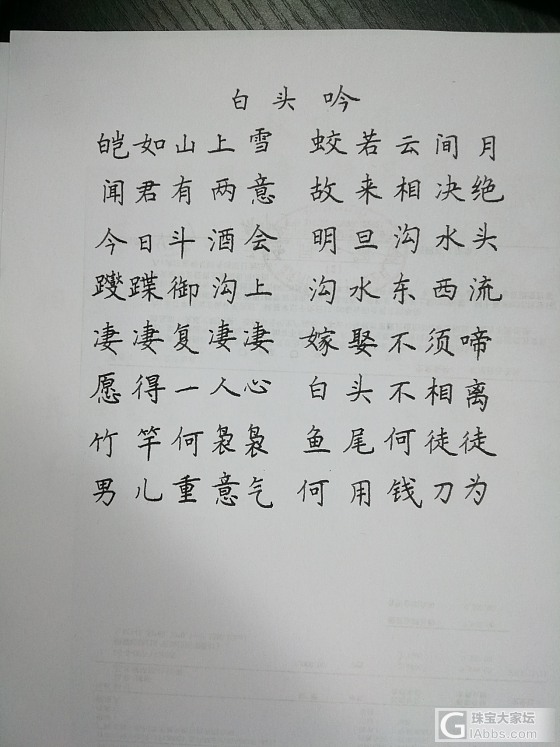 白头吟
皑如山上雪 蛟若云间月
闻君有两意 故来相决绝
今日斗酒会 明旦沟水头
躞蹀御沟上 沟水东西流
凄凄复凄凄 嫁娶不须啼
愿得一人心 白头不相离
竹竿何袅袅 鱼尾何徒徒
男儿重意气 何用钱刀为
珠宝大家坛
GIAbbs.com